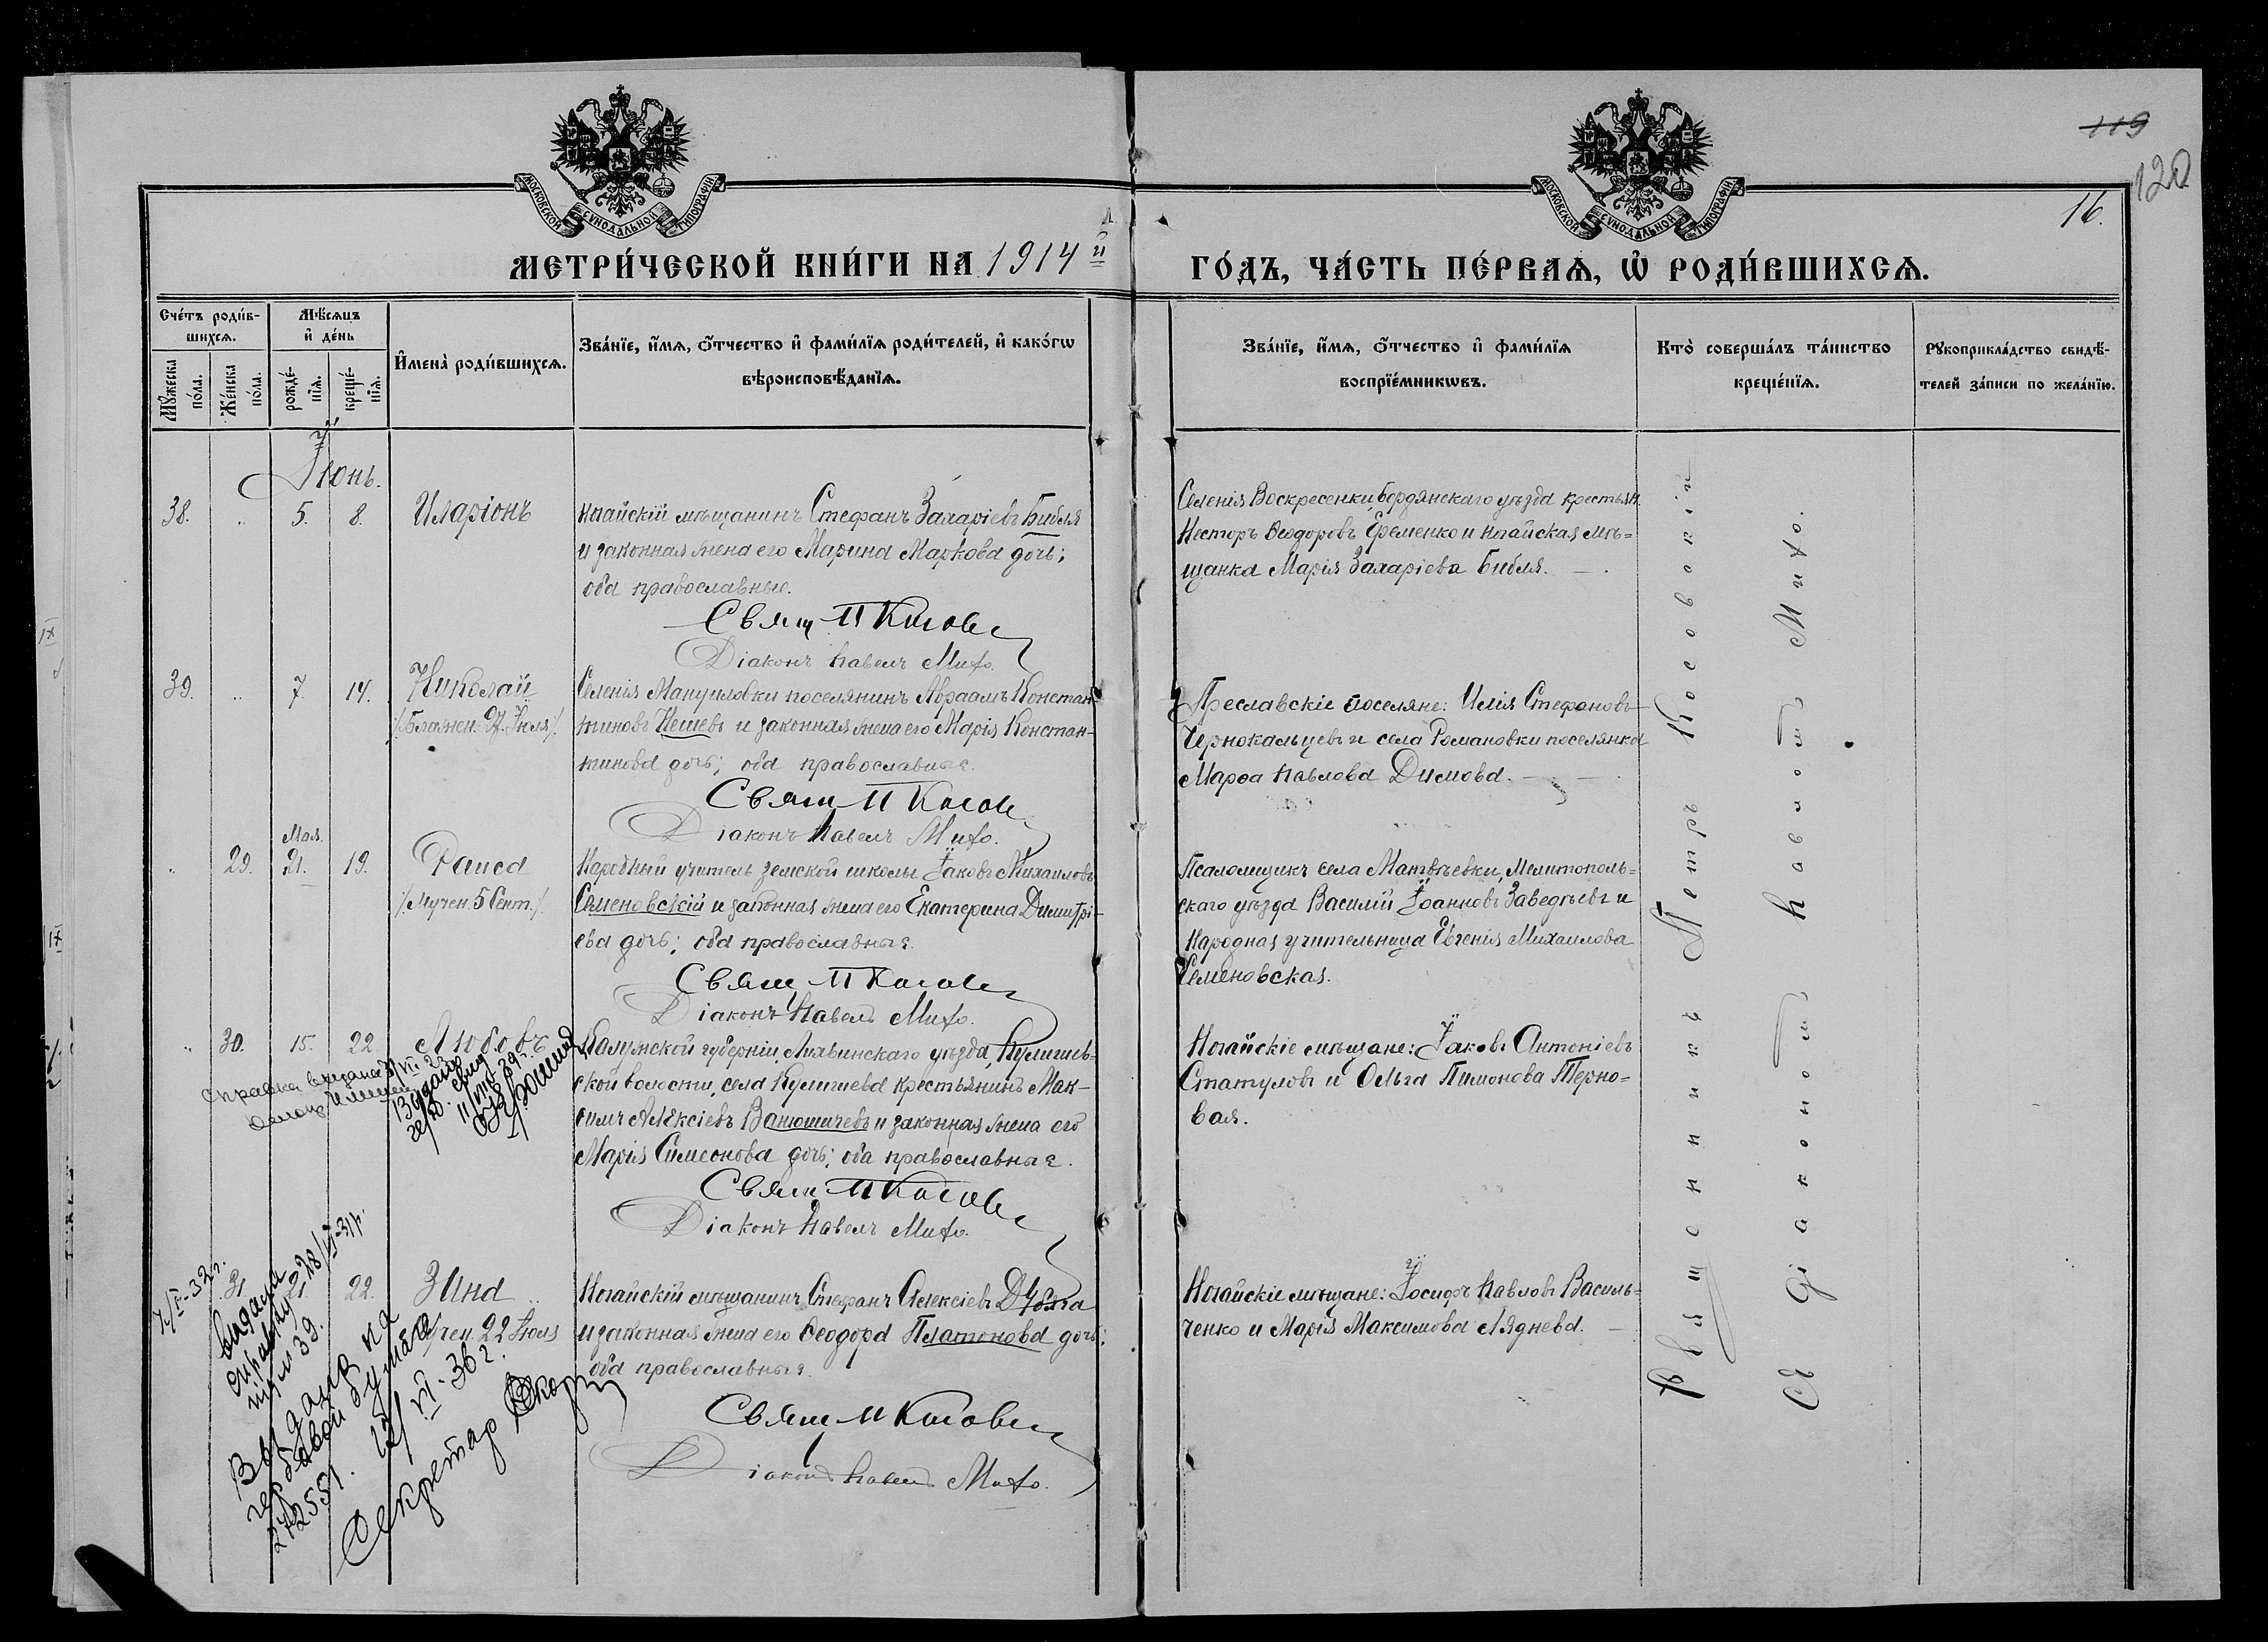 119
120
16.
МОСКОВСКОЙ СѴНОДАЛЬНОЙ ТИПОГРАФІИ
МОСКОВСКОЙ СѴНОДАЛЬНОЙ ТИПОГРАФІИ
МЕТРИ́ЧЕСКОЙ КНИ́ГИ НА 1914 й
ГО́ДЪ, ЧА́СТЬ ПЕ́РВАѦ, Ѡ҆ РОДИ́ВШИХСѦ.
Сче́тъ роди́в-
шихсѧ.
Мѣ́сяцъ
и҆ де́нь
Мꙋ́жеска по́ла.
Же́нска по́ла.
рожде́-
нїѧ.
креще́-
нїѧ.
И҆мена̀ роди́вшихсѧ.
Зва́нїе, и҆́мѧ, ѻ҆́тчество и҆ фами́лїѧ роди́телей, и҆ како́гѡ
вѣроисповѣ́данїѧ.
Зва́нїе, и҆́мѧ, ѻ҆́тчество и҆ фами́лїѧ
воспрїе́мникѡвъ.
Кто̀ соверша́лъ та́инство
креще́нїѧ.
Рꙋкоприкла́дство свидѣ́-
телей за́писи по жела́нїю.
Іюнь.
38. „ 5. 8. Иларіонъ
Ногайскій мѣщанинъ Стефанъ Захаріевъ Библя
и законная жена его Марина Маркова дочь;
оба православные.
Свящ П Косовс
Діаконъ Павелъ Михо.
Селенія Воскресенки, бердянскаго уѣзда крестьян.
Несторъ Ѳеодоровъ Еременко и ногайская мѣ=
щанка Марія Захаріева Библя.
39. „ 7. 14. Николай
/Блажен. 27. Іюля/.
Селенія Мануиловки поселянинъ Авраамъ Констан=
тиновъ Нешевъ и законная жена его Марія Констан-
тинова дочь; оба православные.
Свящ П Косовс
Діаконъ Павелъ Михо.
Преславскіе поселяне: Илія Стефановъ
Чернокальцевъ и села Романовки поселянка
Марѳа Павлова Димова.
Мая.
„ 29. 21. 19. Раиса
/Мучен. 5 Сент./
Народный учитель земской школы Іаковъ Михаиловъ
Семеновскій и законная жена его Екатерина Димитрі-
ева дочь; оба православные.
Свящ П Косовс
Діаконъ Павелъ Михо.
Псаломщикъ села Матвѣевки, Мелитополь=
скаго уѣзда Василій Іоанновъ Заведѣевъ и
Народная учительница Евгенія Михаилова
Семеновская.
„ 30. 15. 22. Любовь
Калужской губерніи, Лихвинскаго уѣзда, Кулешев-
ской волости, села Кулешева крестьянинъ Мак-
симъ Алексіевъ Ванюшичевъ и законная жена его
Марія Симеонова дочь; оба православные.
Свящ П Косовс
Діаконъ Павелъ Михо.
Ногайскіе мѣщане: Іаковъ Антоніевъ
Статуловъ и Ольга Пимонова Терно=
вая.
31. 21. 22. Зина
Мучен. 22 Іюля
Ногайскій мѣщанинъ Стефанъ Алексіевъ Дубяга
и законная жена его Ѳеодора Платонова дочь;
оба православные.
Свящ П Косовс
Діаконъ Павелъ Михо.
Ногайскіе мѣщане: Іосифъ Павловъ Василь=
ченко и Марія Максимова Ляднева.
Священникъ Петръ Косовскій
Съ діакономъ Павломъ Михо.
справка выдана
выдана
справку
Выдана на
гербовой бумаге
272551. 12/VI-36 г.
Секретар